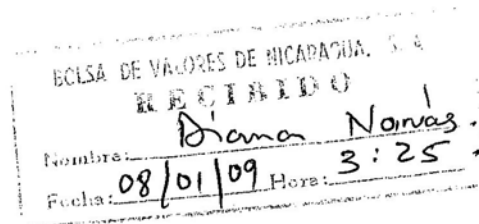 BOLSA DE VALORES DE NICARAGUA, S. A
RECIBIDO
Nombre: Diana Narváz.
Fecha: 08/01/09 Hora: 3:25